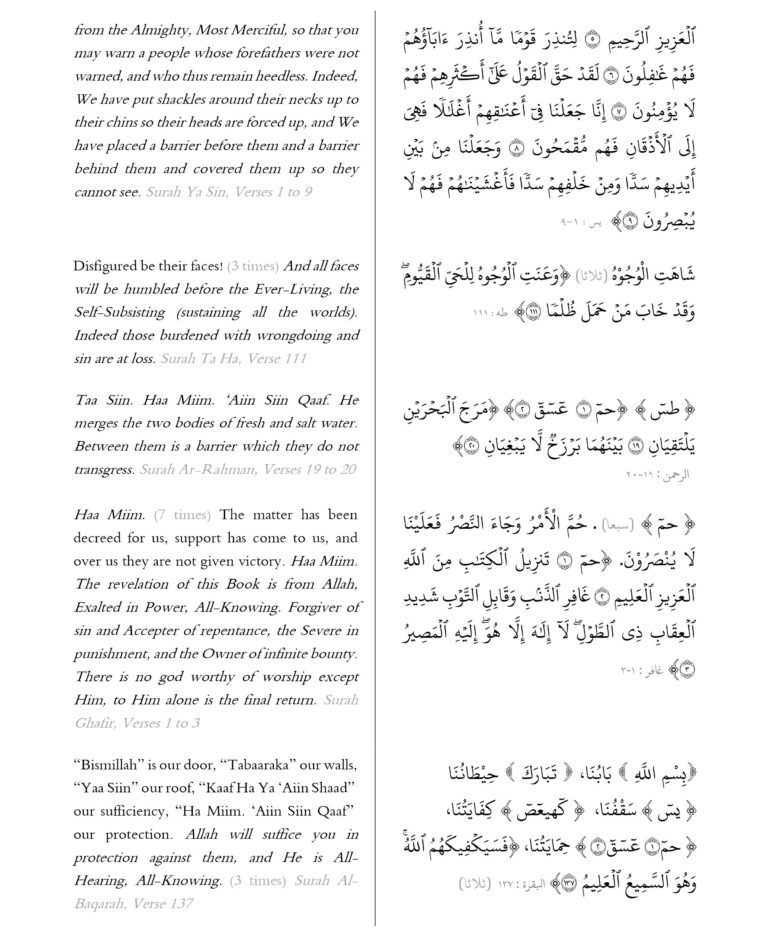 from the Almighty, Most Merciful, so that you
may warn a people whose forefathers were not
warned, and who thus remain heedless. Indeed,
We have put shackles around their necks up to
their chins so their heads are forced up, and We
have placed a barrier before them and a barrier
behind them and covered them up so they
cannot see. Surah Ya Sin, Verses 1 to 9
Disfigured be their faces! (3 times) And all faces
will be humbled before the Ever-Living, the
Self-Subsisting (sustaining all the worlds).
Indeed those burdened with wrongdoing and
sin are at loss. Surah Ta Ha, Verse 111
Taa Siin. Haa Miim. ‘Aiin Siin Qaaf. He
merges the two bodies of fresh and salt water.
Between them is a barrier which they do not
transgress. Surah Ar-Rahman, Verses 19 to 20
Haa Miim. (7 times) The matter has been
decreed for us, support has come to us, and
over us they are not given victory. Haa Miim.
The revelation of this Book is from Allah,
Exalted in Power, All-Knowing. Forgiver of
sin and Accepter of repentance, the Severe in
punishment, and the Owner of infinite bounty.
There is no god worthy of worship except
Him, to Him alone is the final return. Surah
Ghafir, Verses 1 to 3
“Bismillah” is our door, “Tabaaraka” our walls,
“Yaa Siin” our roof, “Kaaf Ha Ya ‘Aiin Shaad”
our sufficiency, “Ha Miim. ‘Aiin Siin Qaaf”
our protection. Allah will suffice you in
protection against them, and He is All-
Hearing, All-Knowing. (3 times) Surah Al-
Baqarah, Verse 137
ٱلْعَزِيزِ ٱلرَّحِيمِ ۝٥ لِتُنذِرَ قَوْمًا مَّآ أُنذِرَ ءَابَآؤُهُمْ
فَهُمْ غَـٰفِلُونَ ۝٦ لَقَدْ حَقَّ ٱلْقَوْلُ عَلَىٰٓ أَكْثَرِهِمْ فَهُمْ
لَا يُؤْمِنُونَ ۝٧ إِنَّا جَعَلْنَا فِىٓ أَعْنَـٰقِهِمْ أَغْلَـٰلًا فَهِىَ
إِلَى ٱلْأَذْقَانِ فَهُم مُّقْمَحُونَ ۝٨ وَجَعَلْنَا مِنۢ بَيْنِ
أَيْدِيهِمْ سَدًّا وَمِنْ خَلْفِهِمْ سَدًّا فَأَغْشَيْنَـٰهُمْ فَهُمْ لَا
يُبْصِرُونَ ۝٩﴾ يس : ١-٩
شَاهَتِ الْوُجُوْهُ (ثلاثا) ﴿وَعَنَتِ ٱلْوُجُوهُ لِلْحَىِّ ٱلْقَيُّومِ ۖ
وَقَدْ خَابَ مَنْ حَمَلَ ظُلْمًا ۝١١١﴾ طه : ١١١
﴿ طسٓ ﴾ ﴿حمٓ ۝١ عٓسٓقٓ ۝٢﴾ ﴿مَرَجَ ٱلْبَحْرَيْنِ
يَلْتَقِيَانِ ۝١٩ بَيْنَهُمَا بَرْزَخٌ لَّا يَبْغِيَانِ ۝٢٠﴾
الرحمن : ١٩-٢٠
﴿ حمٓ ﴾ (سبعا) . حُمَّ الْأَمْرُ وَجَاءَ النَّصْرُ فَعَلَيْنَا
لَا يُنْصَرُوْنَ. ﴿حمٓ ۝١ تَنزِيلُ ٱلْكِتَـٰبِ مِنَ ٱللَّهِ
ٱلْعَزِيزِ ٱلْعَلِيمِ ۝٢ غَافِرِ ٱلذَّنۢبِ وَقَابِلِ ٱلتَّوْبِ شَدِيدِ
ٱلْعِقَابِ ذِى ٱلطَّوْلِ ۖ لَآ إِلَـٰهَ إِلَّا هُوَ ۖ إِلَيْهِ ٱلْمَصِيرُ
۝٣﴾ غافر : ١-٣
﴿بِسْمِ اللَّهِ ﴾ بَابُنَا، ﴿ تَبَارَكَ ﴾ حِيْطَانُنَا
﴿ يسٓ ﴾ سَقْفُنَا، ﴿ كٓهيعٓصٓ ﴾ كِفَايَتُنَا،
﴿ حمٓ ۝١ عٓسٓقٓ ۝٢ ﴾ حِمَايَتُنَا، ﴿فَسَيَكْفِيكَهُمُ ٱللَّهُ ۚ
وَهُوَ ٱلسَّمِيعُ ٱلْعَلِيمُ ۝١٣٧﴾ البقرة : ١٣٧ (ثلاثا)